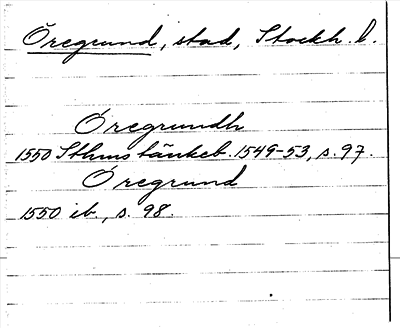 Öregrund, stad, Stockh. l.
Öregrundh
1550 Sthms tänkeb. 1549-53, s. 97.
Öregrund
1550 ib., s. 98.